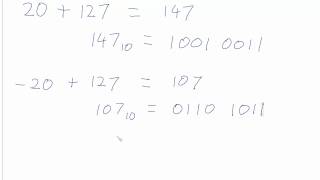 20 + 127 = 147
147₁₀ = 1001 0011
-20 + 127 = 107
107₁₀ = 0110 1011